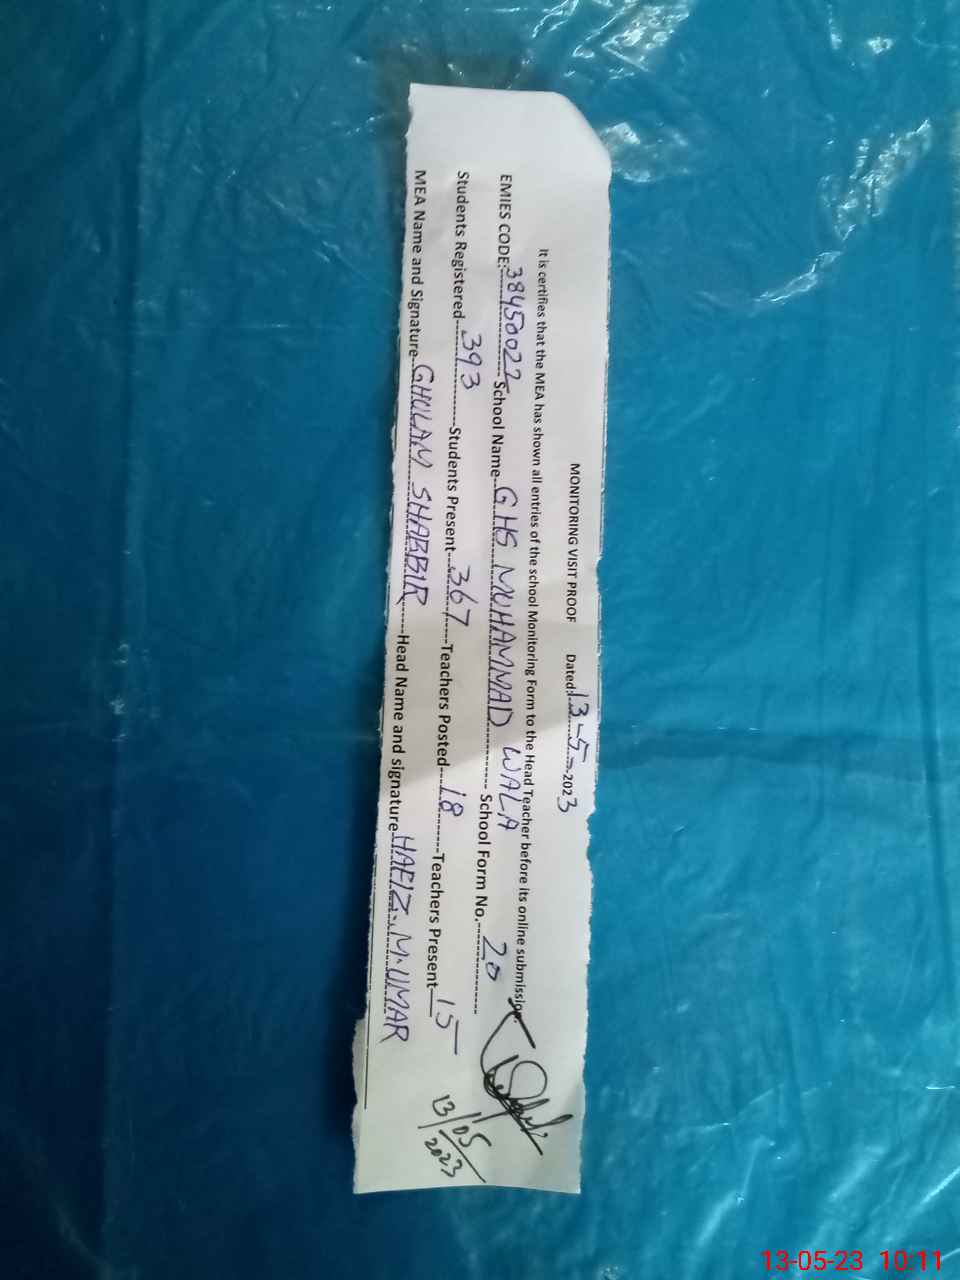 MONITORING VISIT PROOF Dated:13-5-2023
It is certifies that the MEA has shown all entries of the school Monitoring Form to the Head Teacher before its online submission.
EMIES CODE:38450022 School Name GHS MUHAMMAD WALA School Form No. 20
Students Registered 393 Students Present 367 Teachers Posted 18 Teachers Present 15
MEA Name and Signature GHULAM SHABBIR Head Name and signature HAFIZ. M. UMAR
13/05/2023
13-05-23 10:11